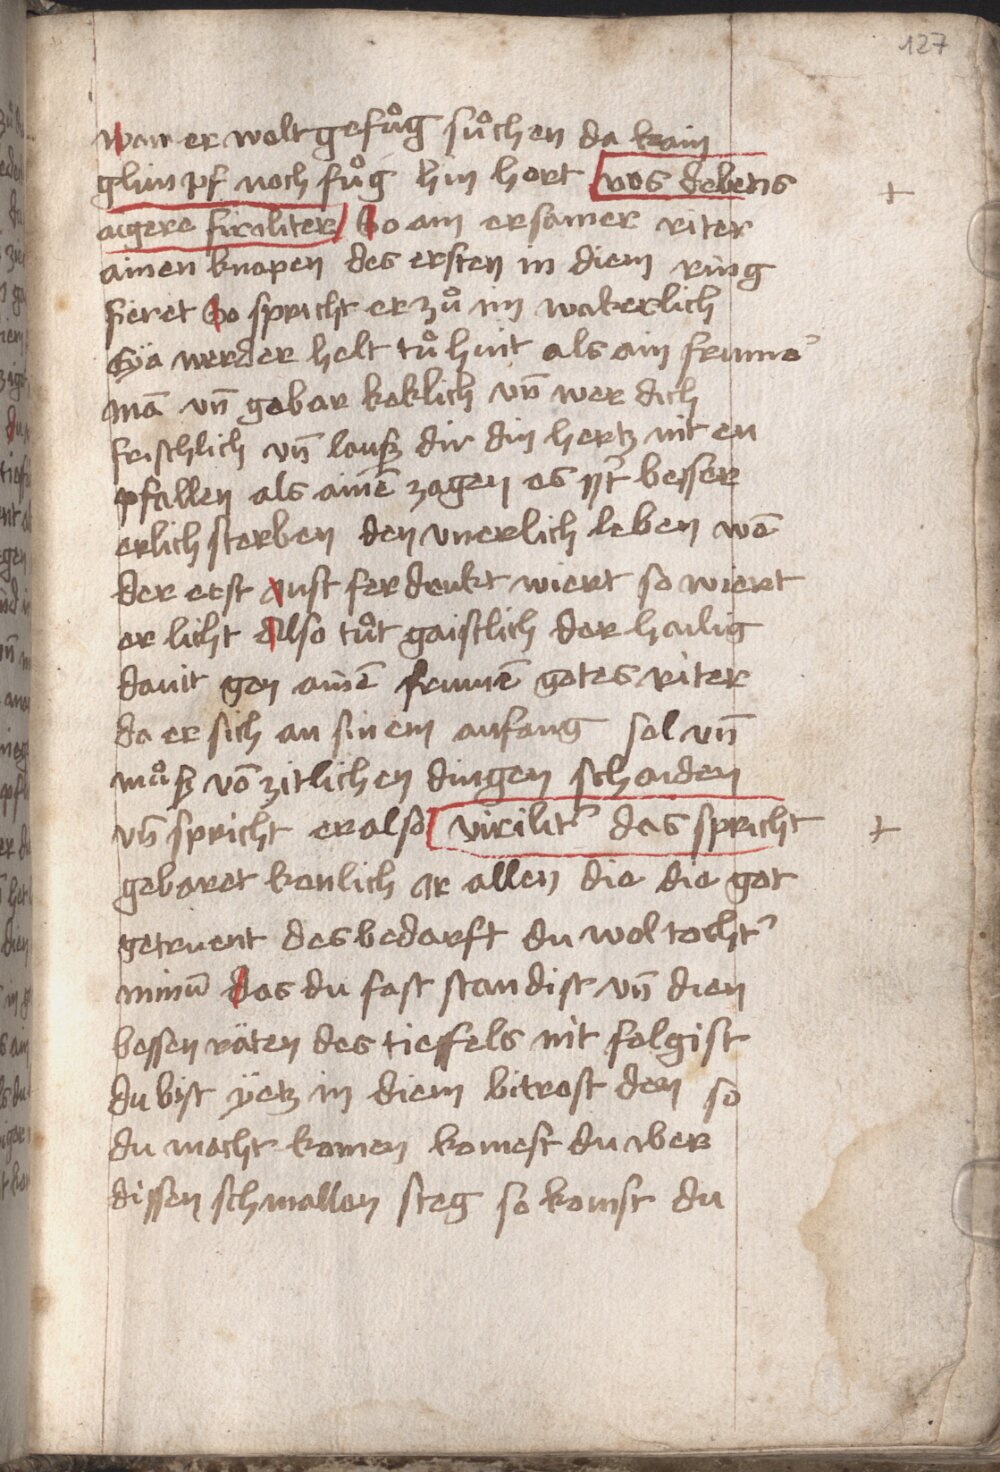 127
wan er wolt gefuͦg suͦchen da kain
glimpf noch fuͦg hin hort vos debetis
aigere firiliter So ain ersamer riter
ainen knapen des ersten in diem ring
fieret So spricht er zuͦ im wakerlich
Eÿa werder helt tuͦ hüt als ain frumer
mā vn̄ gebar keklich vn̄ wer dich
frischlich vn̄ lauſz dir din hertz nit en
pfallen als ainē zagen es ist besser
erlich sterben den vnerlich leben wē
der erst pust ferdenkt wiert so wiert
er licht also tuͦt gaistlich der hailig
dauit gen ainē frumē gotes riter
da er sich an sinem anfang sol vn̄
muͦſz vō zitlichen dingen schaiden
vn̄ spricht er also virilit' das spricht
gebaret kenlich ir allen die die got
getruent des bedarft du wol tocht'
minū das du fast standist vn̄ dien
bessen räten des tieffels nit folgist
du bist yetz in diem bitrost den so
du macht komen komest du vber
dissen schmallen steg so komst du